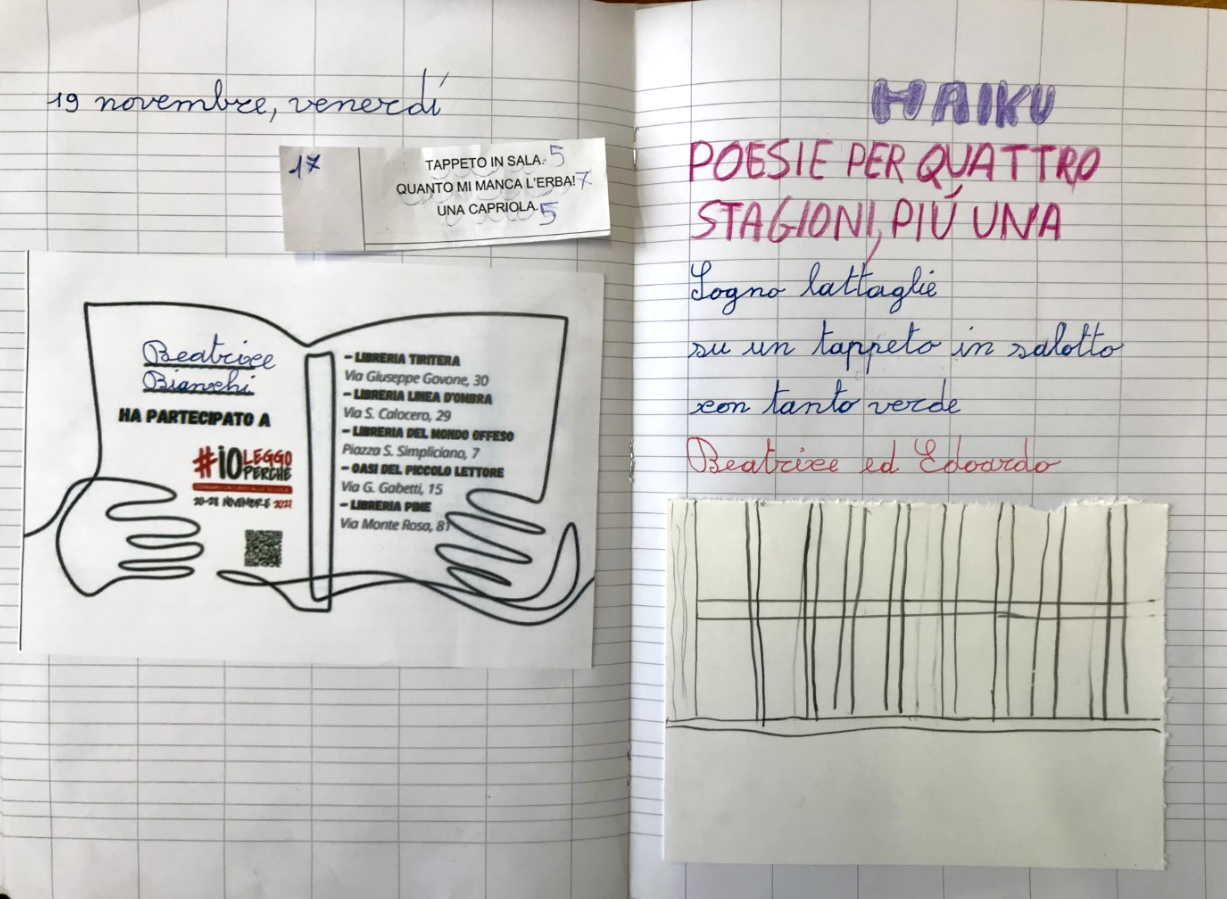 19 novembre, venerdí
17
TAPPETO IN SALA. 5
QUANTO MI MANCA L'ERBA! 7
UNA CAPRIOLA. 5
Beatrice
Bianchi
HA PARTECIPATO A
#iO LEGGO
PERCHÉ
20-28 NOVEMBRE 2021
– LIBRERIA TIRITERA
Via Giuseppe Govone, 30
– LIBRERIA LINEA D'OMBRA
Via S. Calocero, 29
– LIBRERIA DEL MONDO OFFESO
Piazza S. Simpliciano, 7
– OASI DEL PICCOLO LETTORE
Via G. Gabetti, 15
– LIBRERIA PIME
Via Monte Rosa, 81
HAIKU
POESIE PER QUATTRO
STAGIONI, PIÚ UNA
Sogno battaglie
su un tappeto in salotto
con tanto verde
Beatrice ed Edoardo